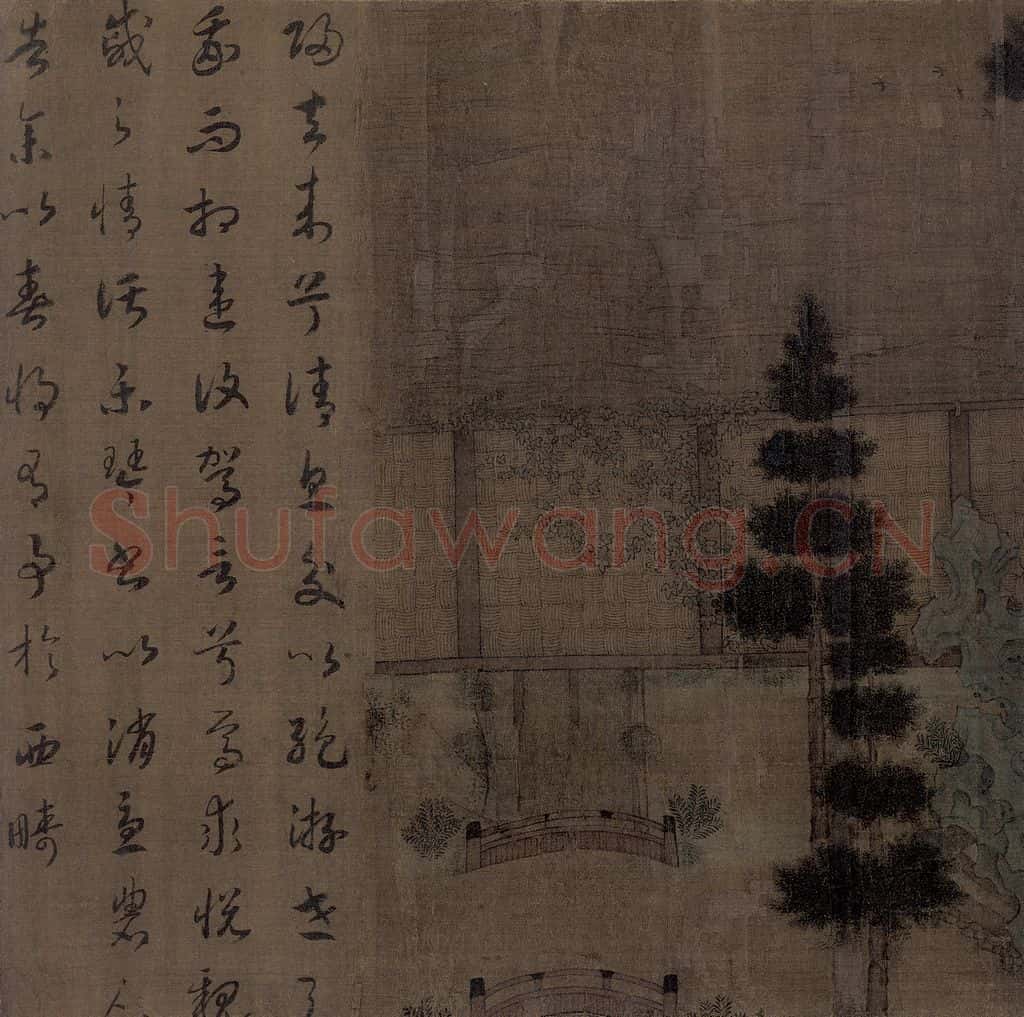 歸去来兮請息交以絶游世
我而相違復駕言兮焉求悦親
戚之情話樂琴書以消憂農人
告余以春将有事於西疇
Shufawang.CN